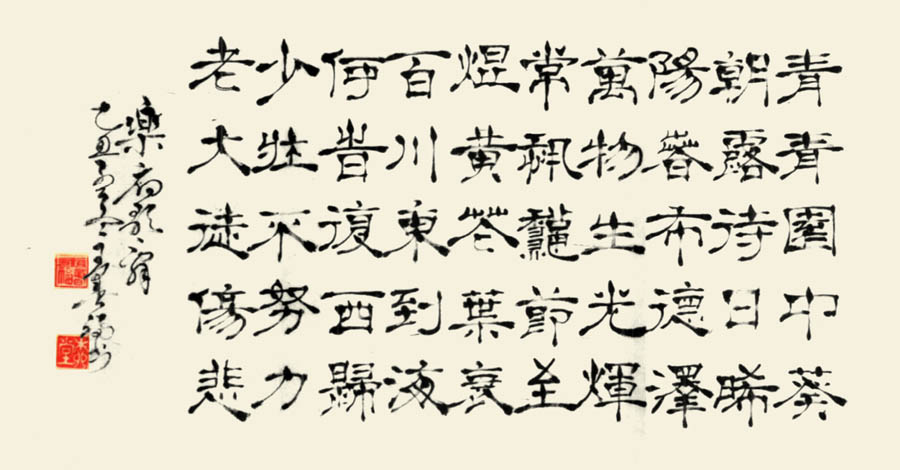 青青園中葵
朝露待日晞
陽春布德澤
萬物生光輝
常恐龝節至
焜黃花葉衰
百川東到海
何旹復西歸
少壯不努力
老大徒傷悲
樂府歌辭